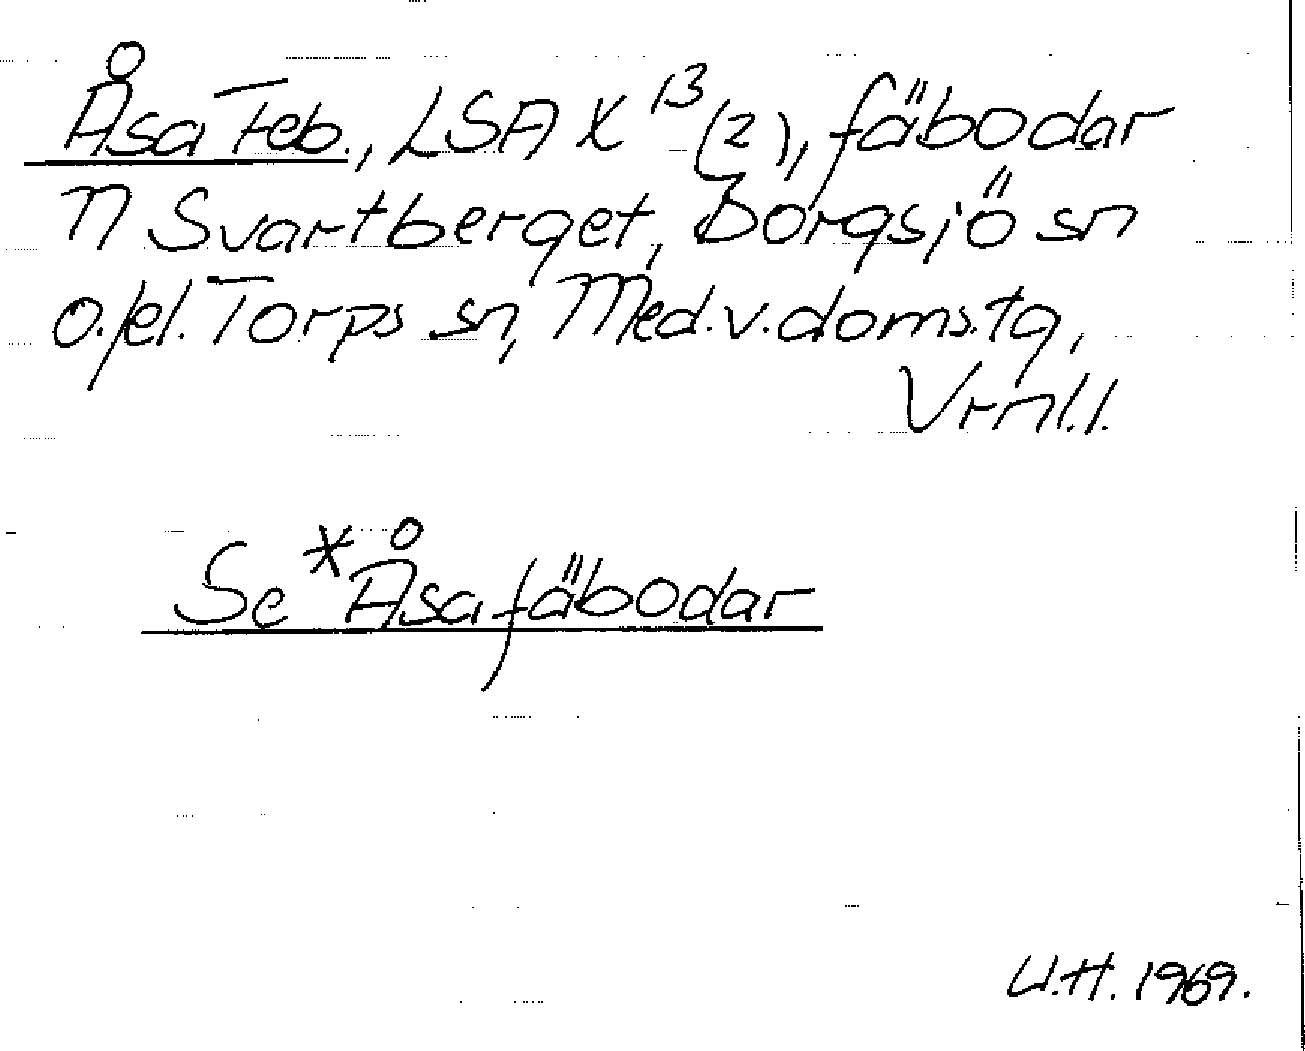 Åsa Feb., LSA X 13 (2), fäbodar
n Svartberget, Borgsjö sn
o./el. Torps sn, Med. v. doms. tg,
Vrnl.l.
Se *Åsa fäbodar
U.H. 1969.